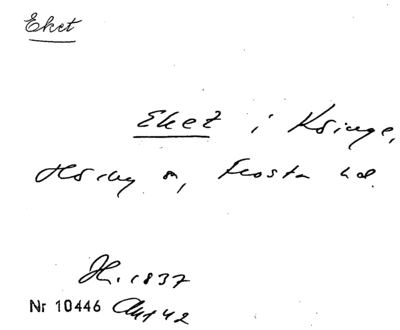 Eket
Eket i Kringe,
Hörby sn, Frosta hd.
H. 1837
Nr 10446